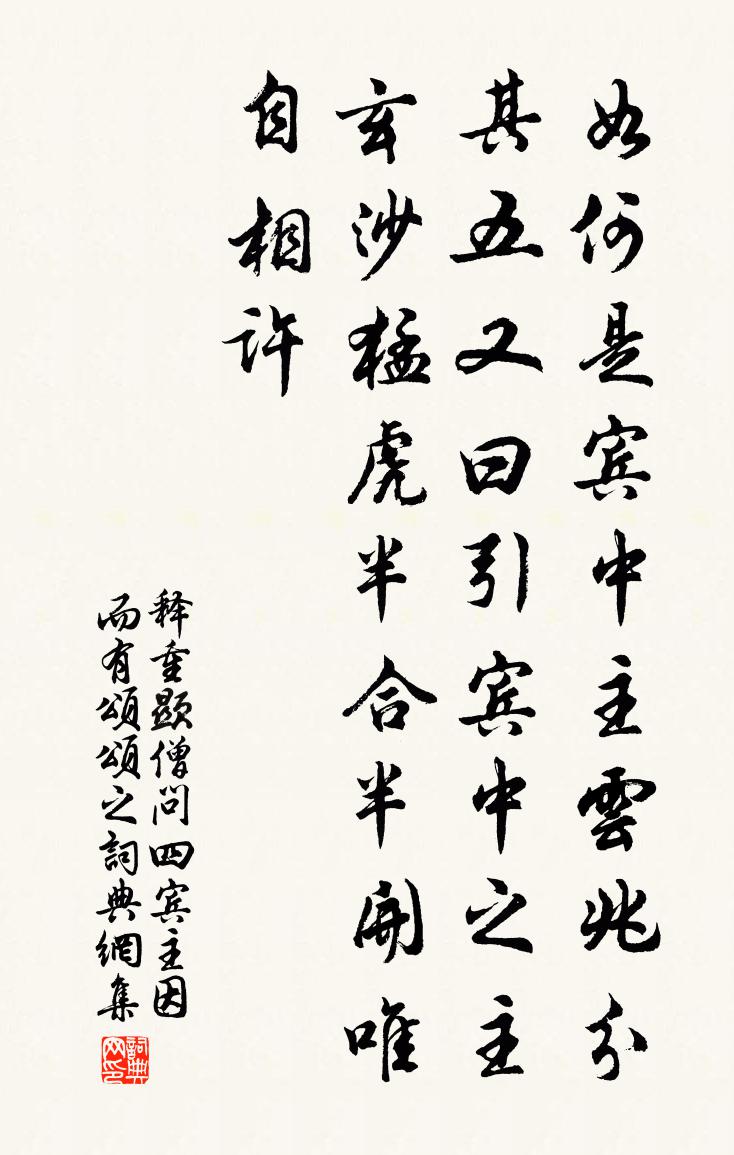 如何是宾中主雲兆分
其五又曰引宾中之主
玄沙猛虎半合半開唯
自相許
释重顯僧问四宾主因
而有頌頌之詞典網集
詞典网印